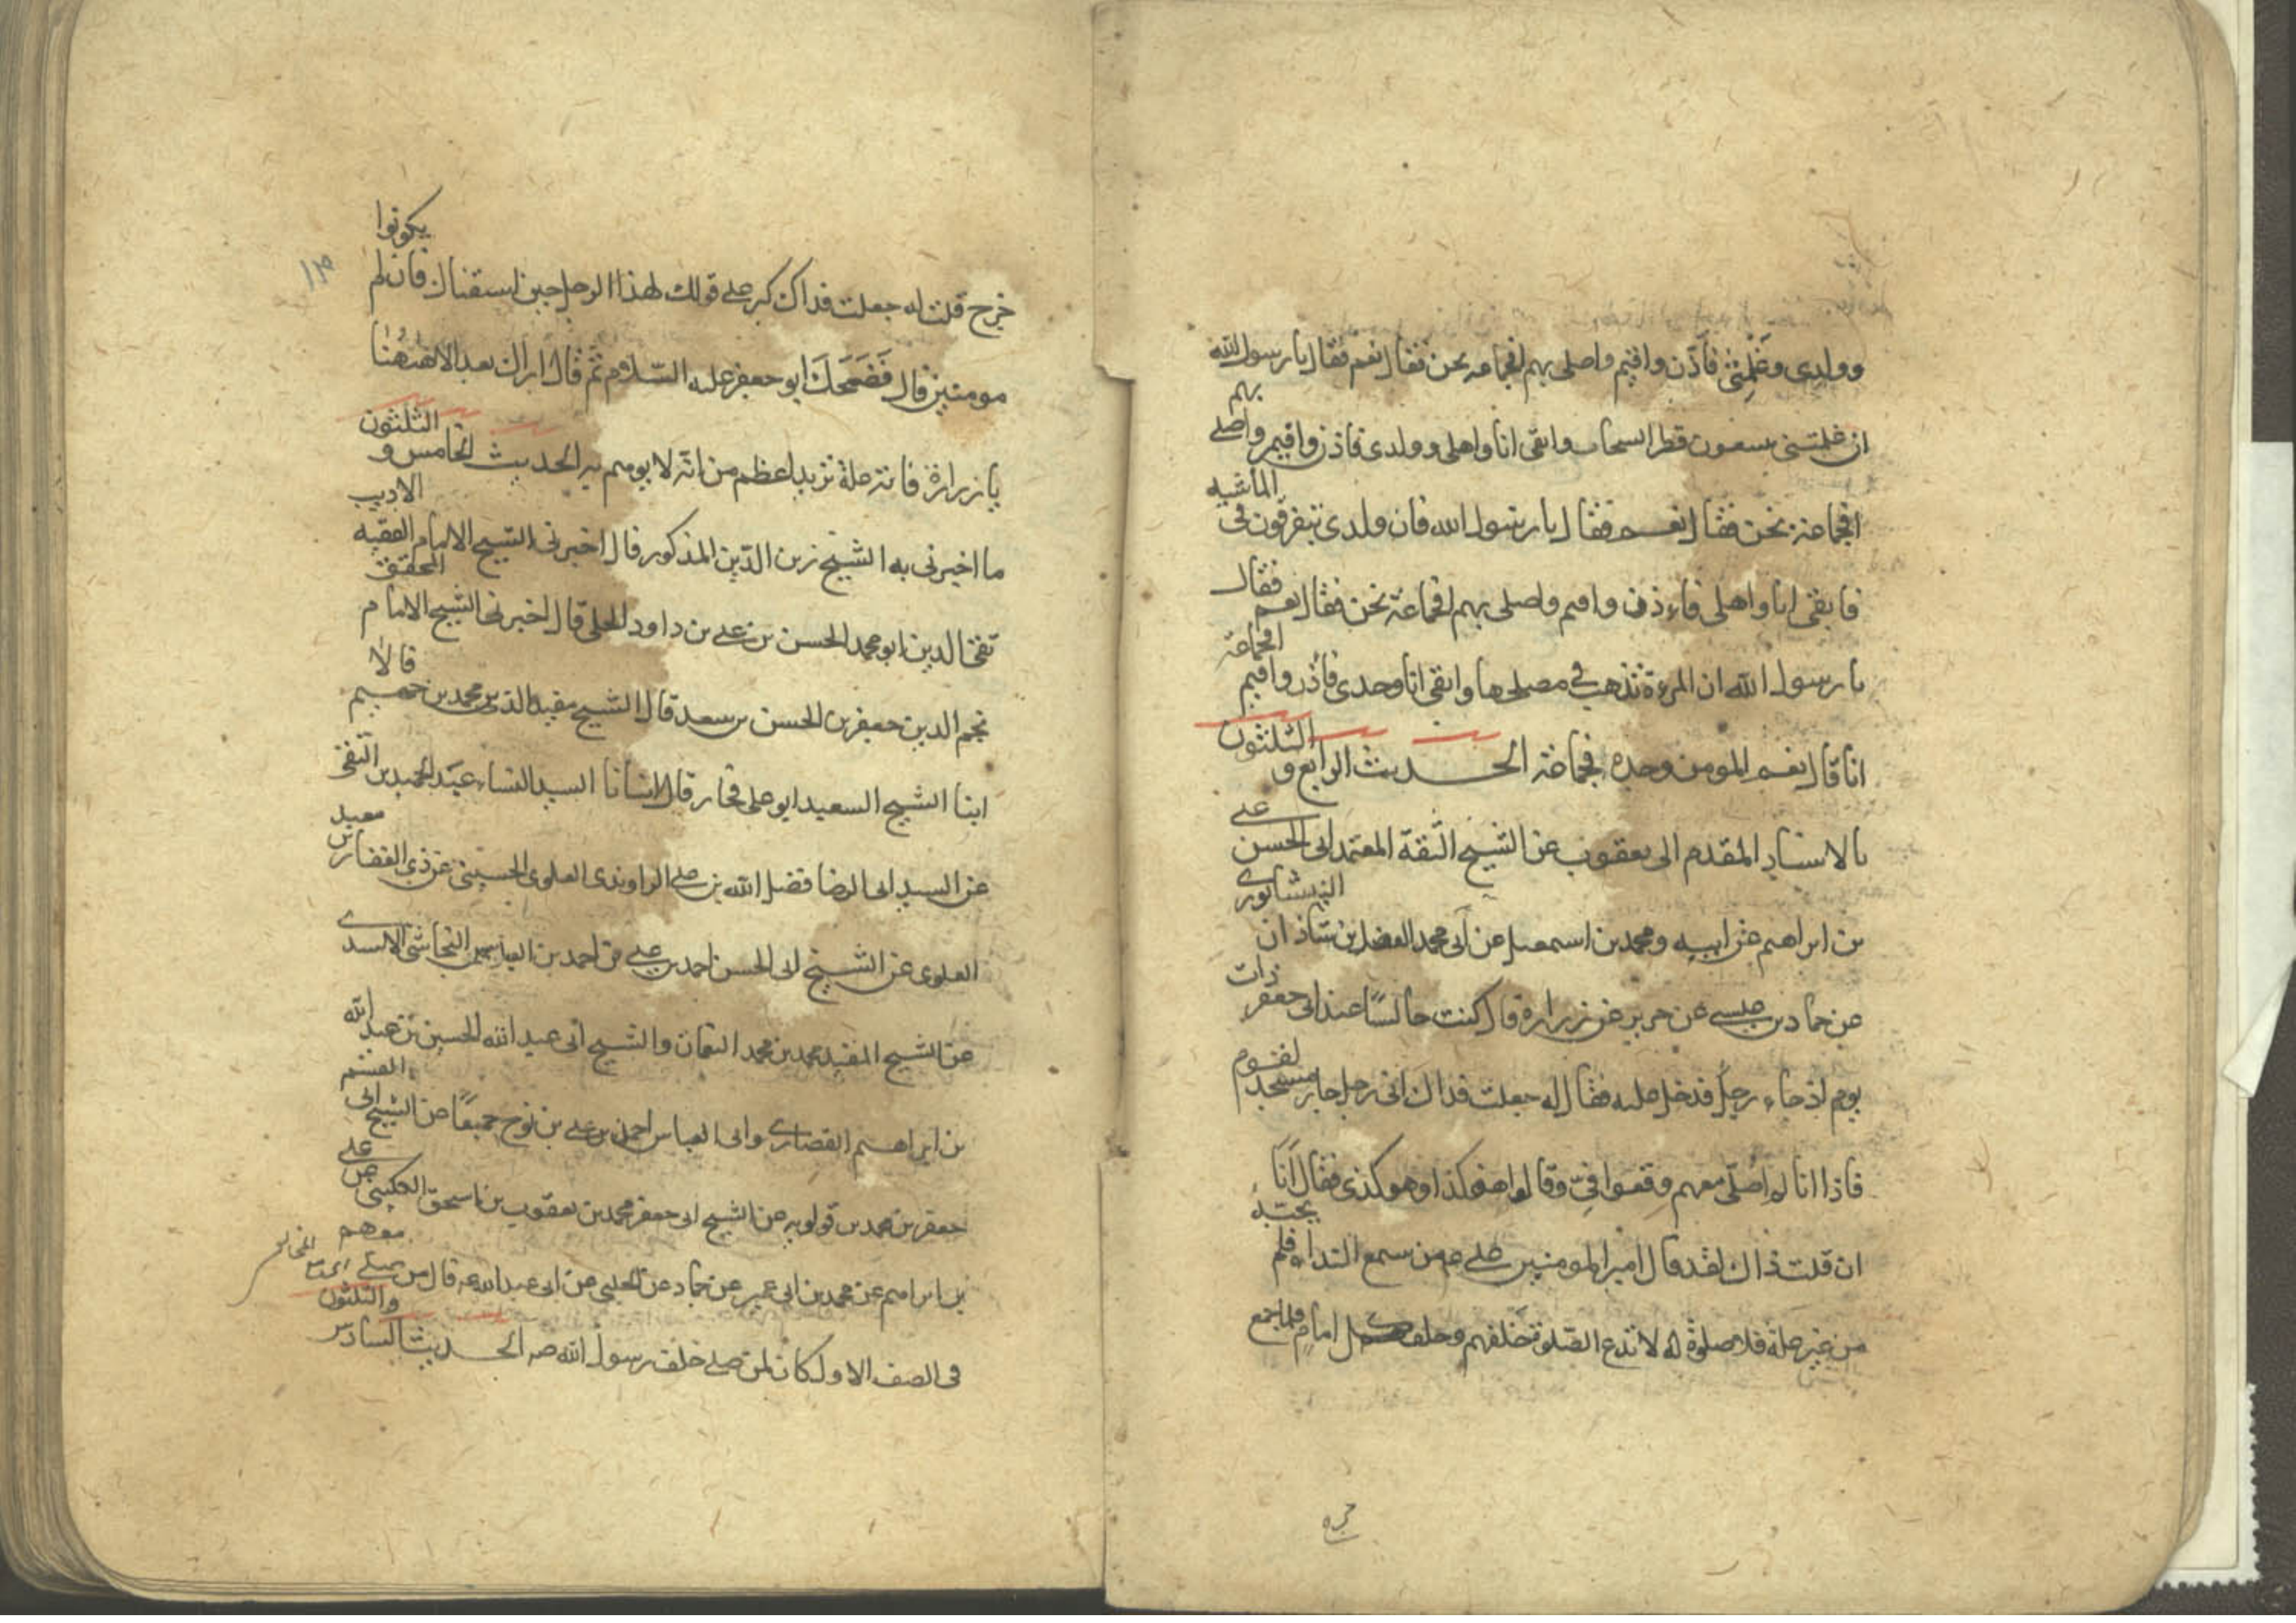 وولدى وغلمتى فأذن واقيم واصلى بهم افجماعه نحن فقال نعم فقال يا رسول الله
ان غلمتى يتبعون قطر السحاب وابقى انا واهلى وولدى فاذن واقيم واصلى بهم
افجماعة نحن فقال نعم فقال يا رسول الله فان ولدى يتفرقون فى الماشيه
فابقى انا واهلى فاءذن واقيم واصلى بهم افجماعة نحن فقال نعم فقال
يا رسول الله ان المرءة تذهب فى مصلحها وابقى انا وحدى فأذن واقيم افجماعة
انا قال نعم المومن وحده جماعة الحديث الرابع و الثلثون
بالاسناد المقدم الى يعقوب عن الشيخ الثقة المعتمد ابى الحسن على
بن ابراهيم عن ابيه ومحمد بن اسمعيل عن ابى محمد الفضل بن شاذان النيشابورى
عن حماد بن عيسى عن حريز عن زرارة قال كنت جالسًا عند ابى جعفر ذات
يوم اذ جاء رجل فدخل عليه فقال له جعلت فداك انى رجل جار مسجد لقوم
فاذا انا لم اصلى معهم وقعوا فىّ وقالوا هو كذا وهو كذى فقال أنا
ان قلت ذاك لقد قال امير المومنين على ع من سمع النداء فلم يجبه
من غير علة فلا صلوة له لا تدع الصلوة خلفهم وخلف كل امام فلما جمع
خره
١٣
خرج قلت له جعلت فداك كبر على قولك لهذا الرجل حين استفتاك فان لم يكونوا
مومنين قال فَضَحَكَ ابو جعفر عليه السّلام ثم قال ما اراك بعد الا ههُنا
يا زرارة فاية علة تريد اعظم من انه لا يوتم به الحديث الخامس و الثلثون
ما اخبرنى به الشيخ زين الدين المذكور قال اخبرنى الشيخ الامام الفقيه الاديب
تقى الدين ابو محمد الحسن بن على بن داود الحلى قال اخبرنى الشيخ الامام المحقق
نجم الدين جعفر بن الحسن بن سعيد قال الشيخ مفيد الدين محمد بن جهيم قالا
ابنا الشيخ السعيد ابو على فخار قال انبانا السيد النساء عبد الحميد بن التقى
عن السيد ابى الرضا فضل الله بن على الراوندى العلوى الحسينى عن ذى الفقار بن معبد
العلوى عن الشيخ ابى الحسن احمد بن على بن احمد بن العباس النجاشى الاسدى
عن الشيخ المفيد محمد بن محمد النعمان والشيخ ابى عبد الله الحسين بن عبد الله
بن ابراهيم الغضارى وابى العباس احمد بن على بن نوح جميعًا عن الشيخ ابى القسم
جعفر بن محمد بن قولويه عن الشيخ ابى جعفر محمد بن يعقوب بن اسحق الكلينى عن على
بن ابراهيم عن محمد بن ابى عمير عن حماد عن الحلبى عن ابى عبد الله ع قال من صلى معهم
فى الصف الاول كان كمن صلى خلف رسول الله صه الحديث السادس والثلثون